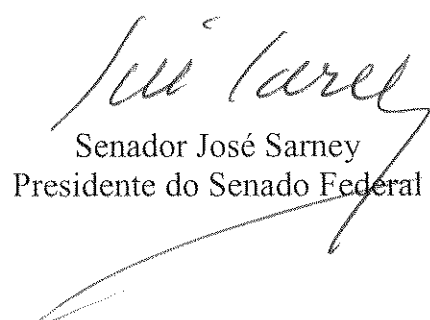 Senador José Sarney
Presidente do Senado Federal